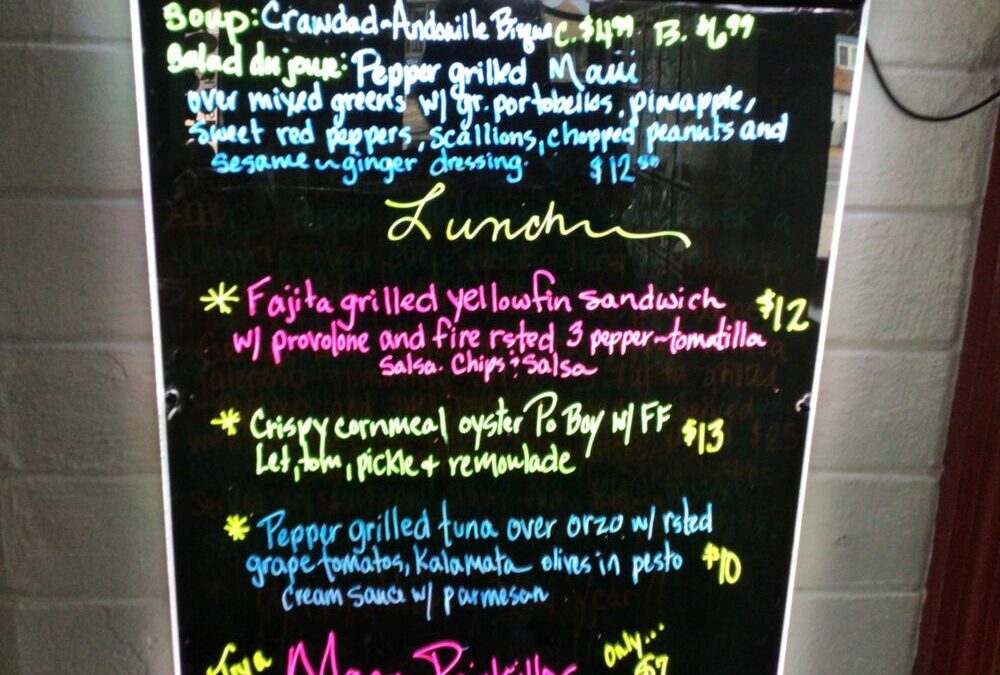 Soup: Crawdad-Andouille Bisque C. $4.99 B. $6.99
Salad du jour: Pepper grilled Maui
over mixed greens w/ gr. portobellos, pineapple,
sweet red peppers, scallions, chopped peanuts and
sesame~ginger dressing. $12.00
Lunch
* Fajita grilled yellowfin sandwich $12
w/ provolone and fire rsted 3 pepper~tomatilla
Salsa. Chips & Salsa
* Crispy cornmeal oyster Po Boy w/ FF $13
Let, tom, pickle + remoulade
* Pepper grilled tuna over orzo w/ rsted
grape tomatos, Kalamata olives in pesto $10
cream sauce w/ parmesan
Try a only...
$7